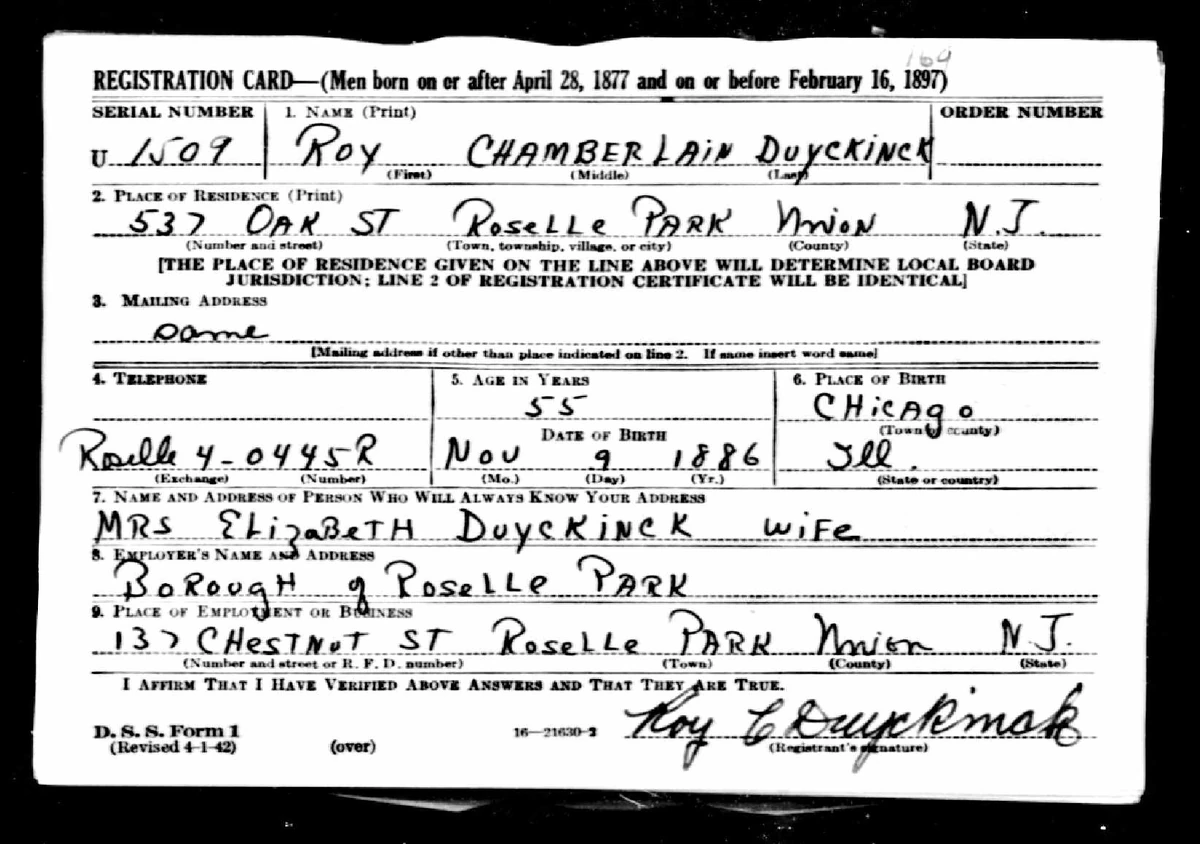 169
REGISTRATION CARD—(Men born on or after April 28, 1877 and on or before February 16, 1897)
SERIAL NUMBER 1. NAME (Print) ORDER NUMBER
U 1509 ROY CHAMBERLAIN DUYCKINCK
(First) (Middle) (Last)
2. PLACE OF RESIDENCE (Print)
537 OAK ST ROSELLE PARK UNION N.J.
(Number and street) (Town, township, village, or city) (County) (State)
[THE PLACE OF RESIDENCE GIVEN ON THE LINE ABOVE WILL DETERMINE LOCAL BOARD
JURISDICTION; LINE 2 OF REGISTRATION CERTIFICATE WILL BE IDENTICAL]
3. MAILING ADDRESS
Same
[Mailing address if other than place indicated on line 2. If same insert word same]
4. TELEPHONE 5. AGE IN YEARS 6. PLACE OF BIRTH
55 CHICAGO
DATE OF BIRTH (Town or county)
Roselle 4-0445R NOV 9 1886 Ill.
(Exchange) (Number) (Mo.) (Day) (Yr.) (State or country)
7. NAME AND ADDRESS OF PERSON WHO WILL ALWAYS KNOW YOUR ADDRESS
MRS ELIZABETH DUYCKINCK WIFE
8. EMPLOYER'S NAME AND ADDRESS
BOROUGH of ROSELLE PARK
9. PLACE OF EMPLOYMENT OR BUSINESS
137 CHESTNUT ST ROSELLE PARK UNION N.J.
(Number and street or R. F. D. number) (Town) (County) (State)
I AFFIRM THAT I HAVE VERIFIED ABOVE ANSWERS AND THAT THEY ARE TRUE.
Roy C Duyckinck
D. S. S. Form 1 16—21630-2 (Registrant's signature)
(Revised 4-1-42) (over)